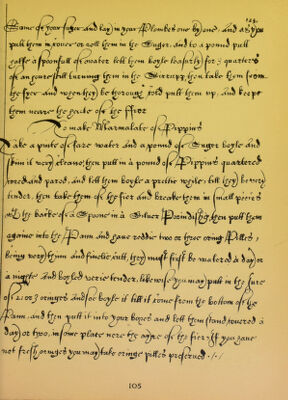 Some of your suger and lay in your Plombes one by one, And as you
put them in, cover or roll them in the Suger, and to a pound put
halfe a spoonfull of water lett them boyle leasurly for 3 quarters
of an houre still turning them in the Sirrupp, then take them from
the fyer and when they be thorough cold put them up, and keepe
them neare the heate of the ffier
To make Marmalate of Pippins
Take a pinte of faire water and a pound of Suger boyle and
skim it very cleane, then put in a pound of Pippins quartered
cored and pared, and lett them boyle a prettie while, till they be very
tender, then take them of the fier and breake them in small peices
with the backe of a Spoone in a Silver Porindish, then put them
againe into the Pann and have reddie two or three oring Pilles,
being very thinn and finelie cutt, they must first be watered a day or
a nighte And boyled verie tender, likewise you may put in the Juce
of 2 or 3 oringes and soe boyle it till it come from the bottom of the
Pann, and then put it into your boxes and lett them stand covered a
day or two, in some place nere the ayre of the fier, If you have
not fresh oringes you may take oringe pilles preserved
105